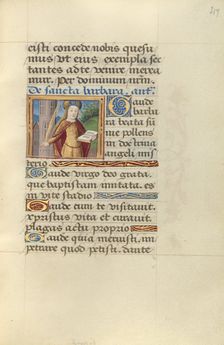 cisti concede nobis quesu
mus ut eius exempla sec
tantes ad te venire merea
mur. Per dominum nrm.
De sancta barbara. ant.
Gaude barba
ra beata su
me pollens
in doctrina
angeli mis
terio.
Gaude virgo deo grata.
que baptistam imitata. es
in vite stadio
Gaude cum te visitavit.
xpristus vita et curavit.
plagas actu proprio
Gaude quia meruisti. im
petrare quod petisti. dante